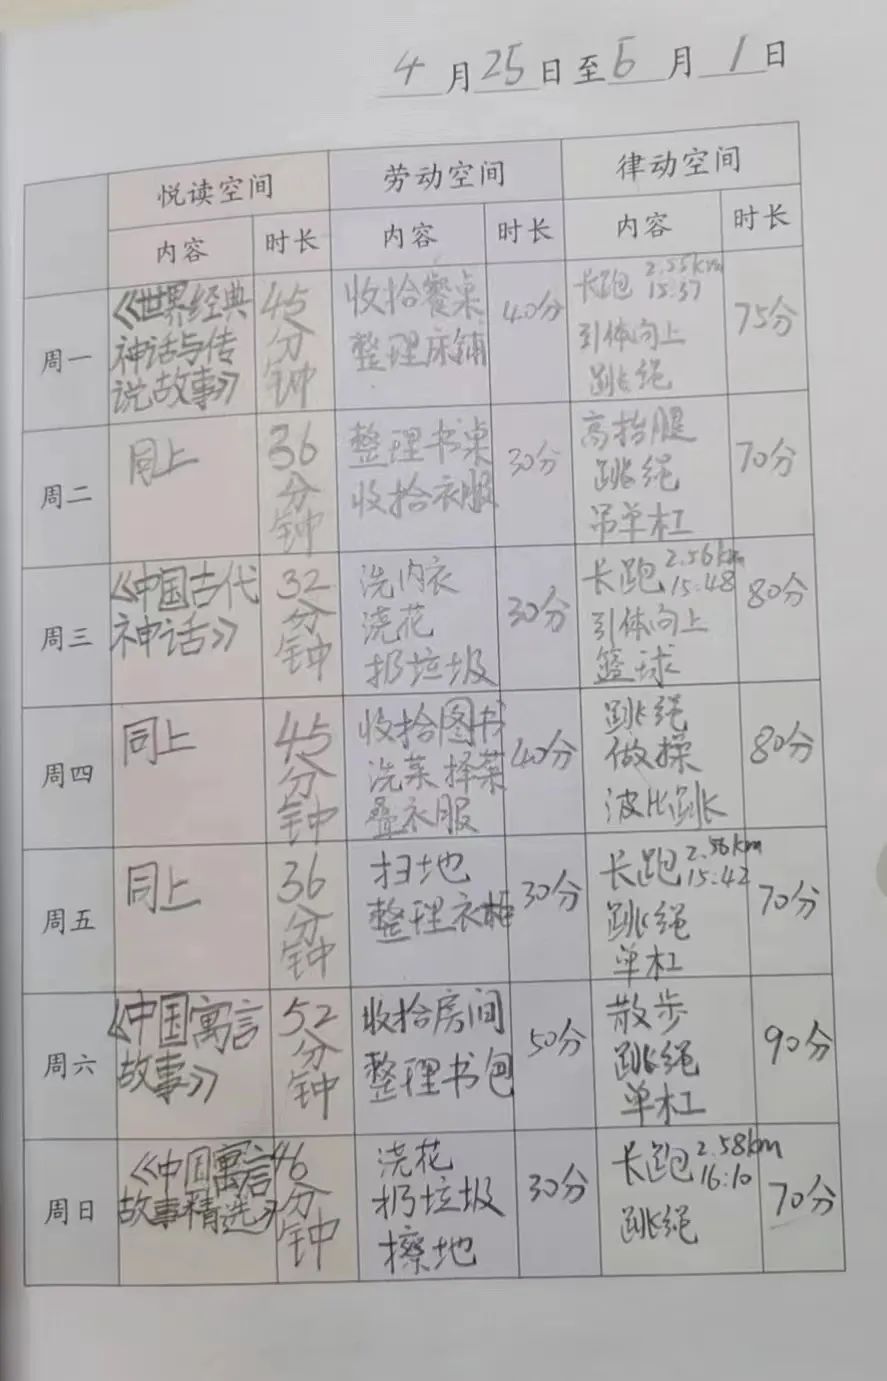 4月25日至5月1日
悦读空间 劳动空间 律动空间
内容 时长 内容 时长 内容 时长
周一
《世界经典
神话与传
说故事》
45
分
钟
收拾餐桌
整理床铺
40分
长跑 2.55km
15:37
引体向上
跳绳
75分
周二
同上
36
分
钟
整理书桌
收拾衣服
30分
高抬腿
跳绳
吊单杠
70分
周三
《中国古代
神话》
32
分
钟
洗内衣
浇花
扔垃圾
30分
长跑 2.56km
15:48
引体向上
篮球
80分
周四
同上
45
分
钟
收拾图书
洗菜择菜
叠衣服
40分
跳绳
做操
波比跳
80分
周五
同上
36
分
钟
扫地
整理衣柜
30分
长跑 2.56km
15:42
跳绳
单杠
70分
周六
《中国寓言
故事》
52
分
钟
收拾房间
整理书包
50分
散步
跳绳
单杠
90分
周日
《中国寓言
故事精选》
46
分
钟
浇花
扔垃圾
擦地
30分
长跑 2.58km
16:10
跳绳
70分